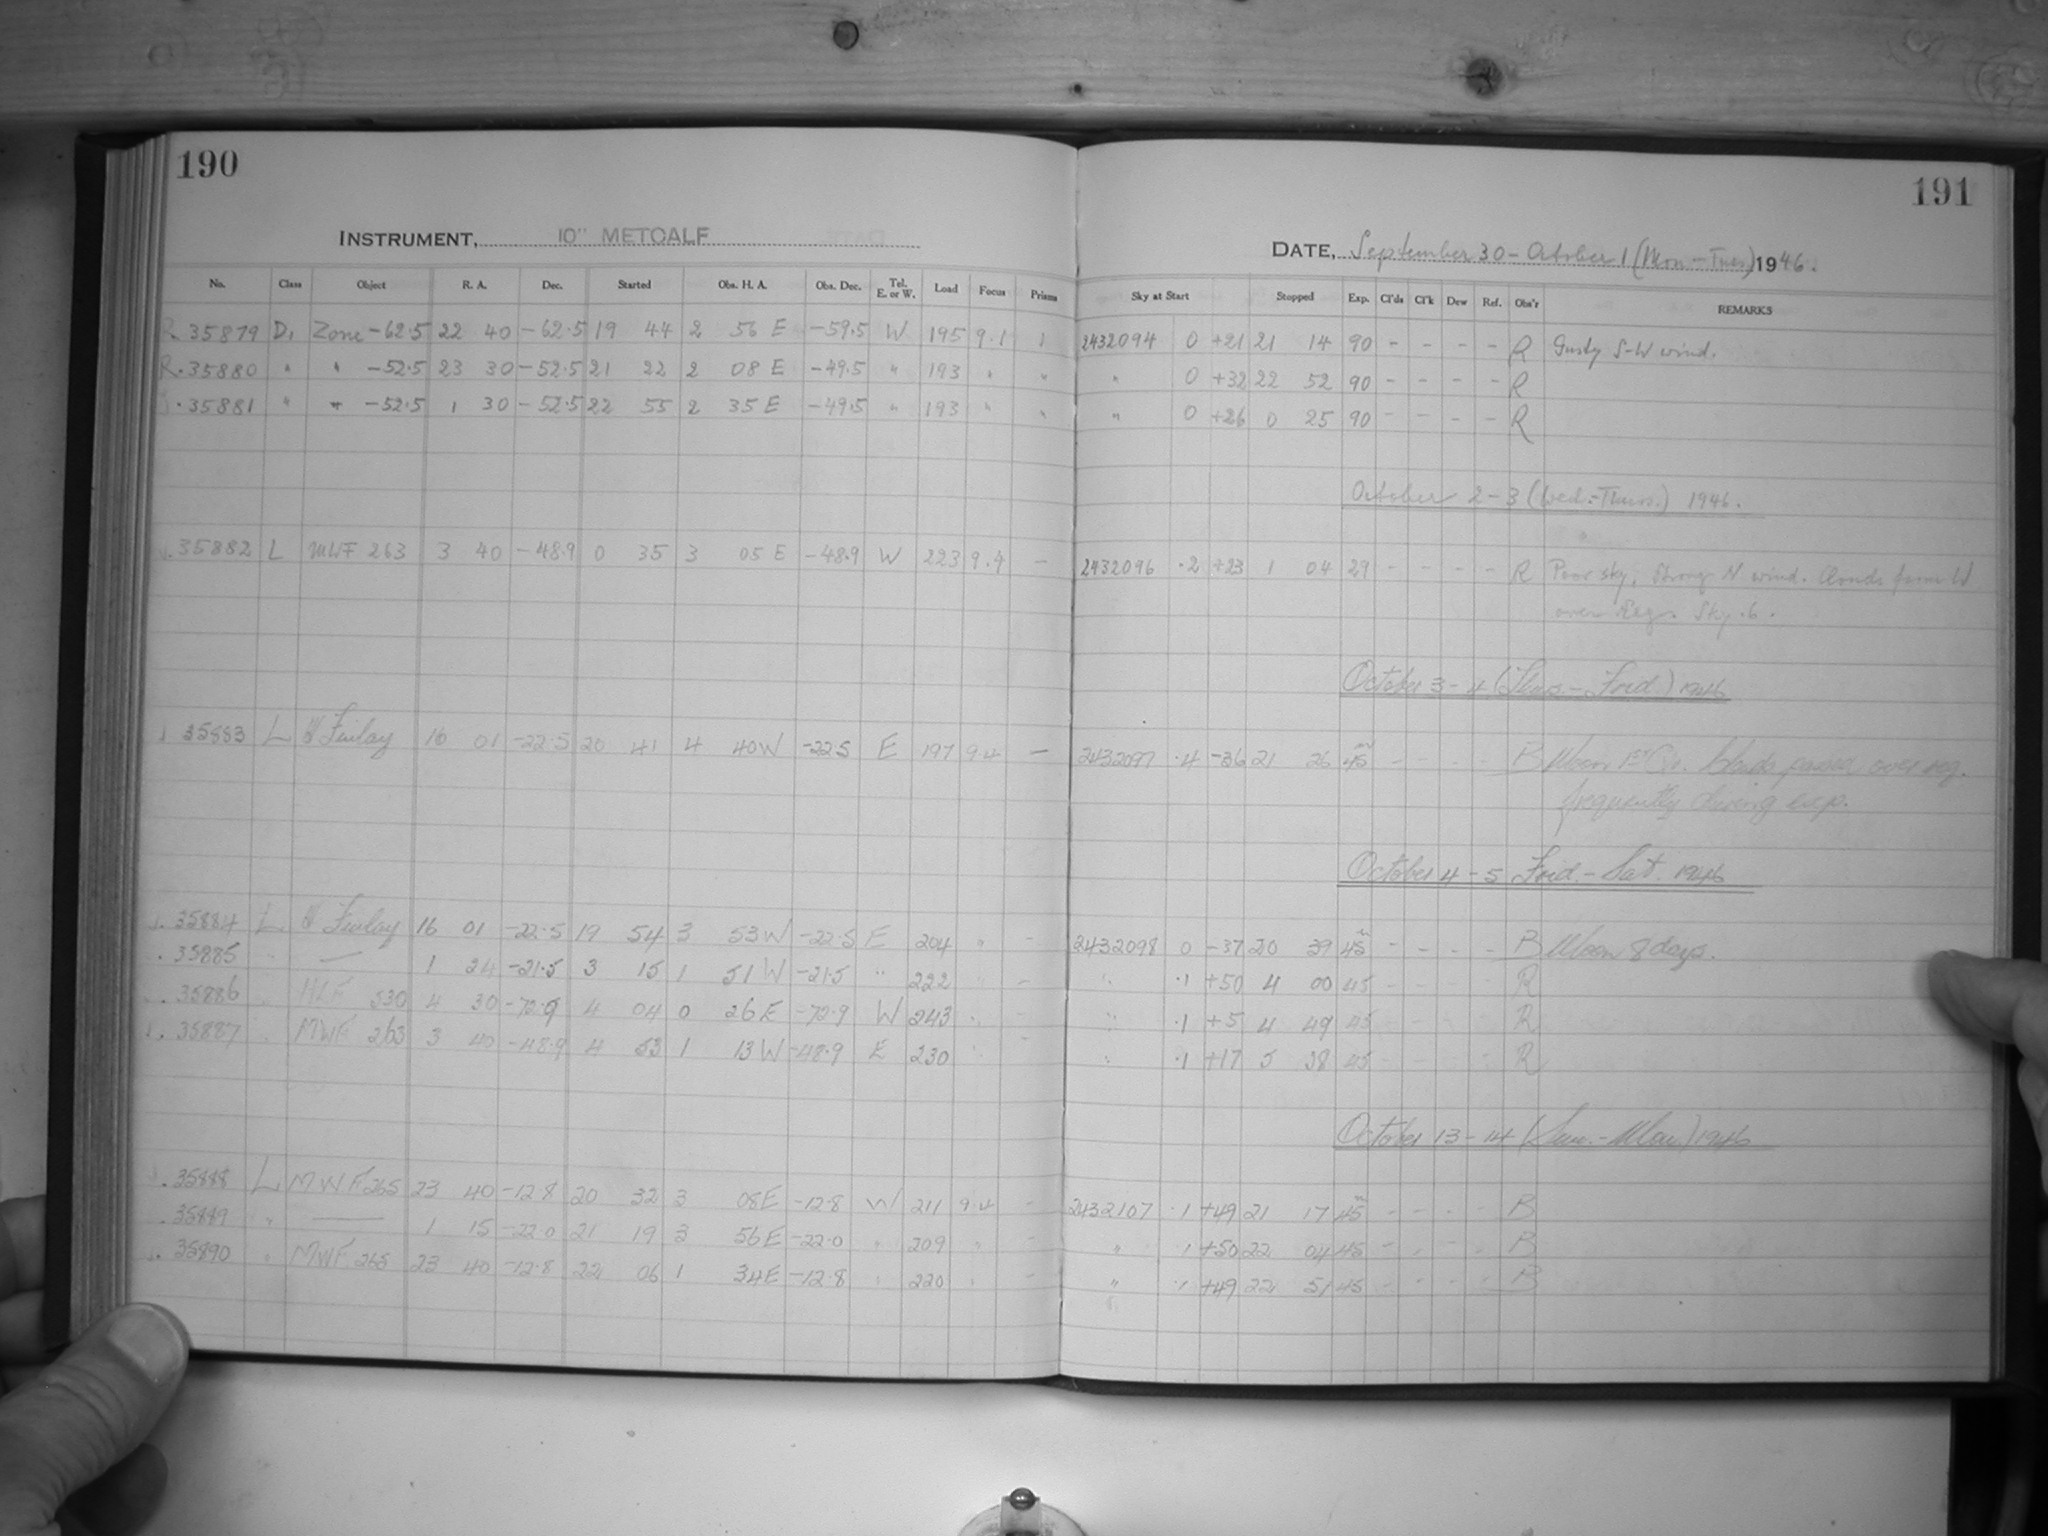 190
INSTRUMENT, 10" METCALF
No. Class Object R. A. Dec. Started Obs. H. A. Obs. Dec. Tel. E. or W. Load Focus Prisms
35879 D, Zone -62.5 22 40 -62.5 19 44 2 56 E -59.5 W 195 9.1 1
35880 " " -52.5 23 30 -52.5 21 22 2 08 E -49.5 " 193 " "
35881 " " -52.5 1 30 -52.5 22 55 2 35 E -49.5 " 193 " "
35882 L MWF 263 3 40 -48.9 0 35 3 05 E -48.9 W 223 9.4 -
35883 L Finlay 16 01 -22.5 20 41 4 40 W -22.5 E 197 9.4 -
35884 L Finlay 16 01 -22.5 19 54 3 53 W -22.5 E 204 " -
35885 " — 1 24 -21.5 3 15 1 51 W -21.5 " 222
35886 " HLF 530 4 30 -72.9 4 04 0 26 E -72.9 W 243 " -
35887 " MWF 263 3 40 -48.9 4 53 1 13 W -48.9 E 230 " -
35888 L MWF 265 23 40 -12.8 20 32 3 08 E -12.8 W 211 9.4 -
35889 " — 1 15 -22.0 21 19 3 56 E -22.0 " 209 " -
35890 " MWF 265 23 40 -12.8 22 06 1 34 E -12.8 " 220 " -
191
DATE, September 30 - October 1 (Mon - Tues) 1946.
Sky at Start Stopped Exp. Cl'ds Cl'k Dew Ref. Obs'r REMARKS
2432094 0 +21 21 14 90 - - - - R Gusty S-W wind.
" 0 +32 22 52 90 - - - - R
" 0 +26 0 25 90 - - - - R
October 2-3 (Wed.-Thurs.) 1946.
2432096 .2 +23 1 04 29 - - - - R Poor sky, Strong N wind. Clouds from W
over Reg. Sky .6.
October 3-4 (Thurs.-Frid.) 1946
2432097 .4 -36 21 26 45 - - - - B Moon 1st Qr. Clouds passed over reg.
frequently during exp.
October 4-5 Frid.-Sat. 1946
2432098 0 -37 20 39 45 - - - - B Moon 8 days.
" .1 +50 4 00 45 - - - - R
" .1 +5 4 49 45 - - - - R
" .1 +17 5 38 45 - - - - R
October 13-14 (Sun.-Mon.) 1946
2432107 .1 +49 21 17 45 - - - - B
" .1 +50 22 04 45 - - - - B
" .1 +49 22 51 45 - - - - B